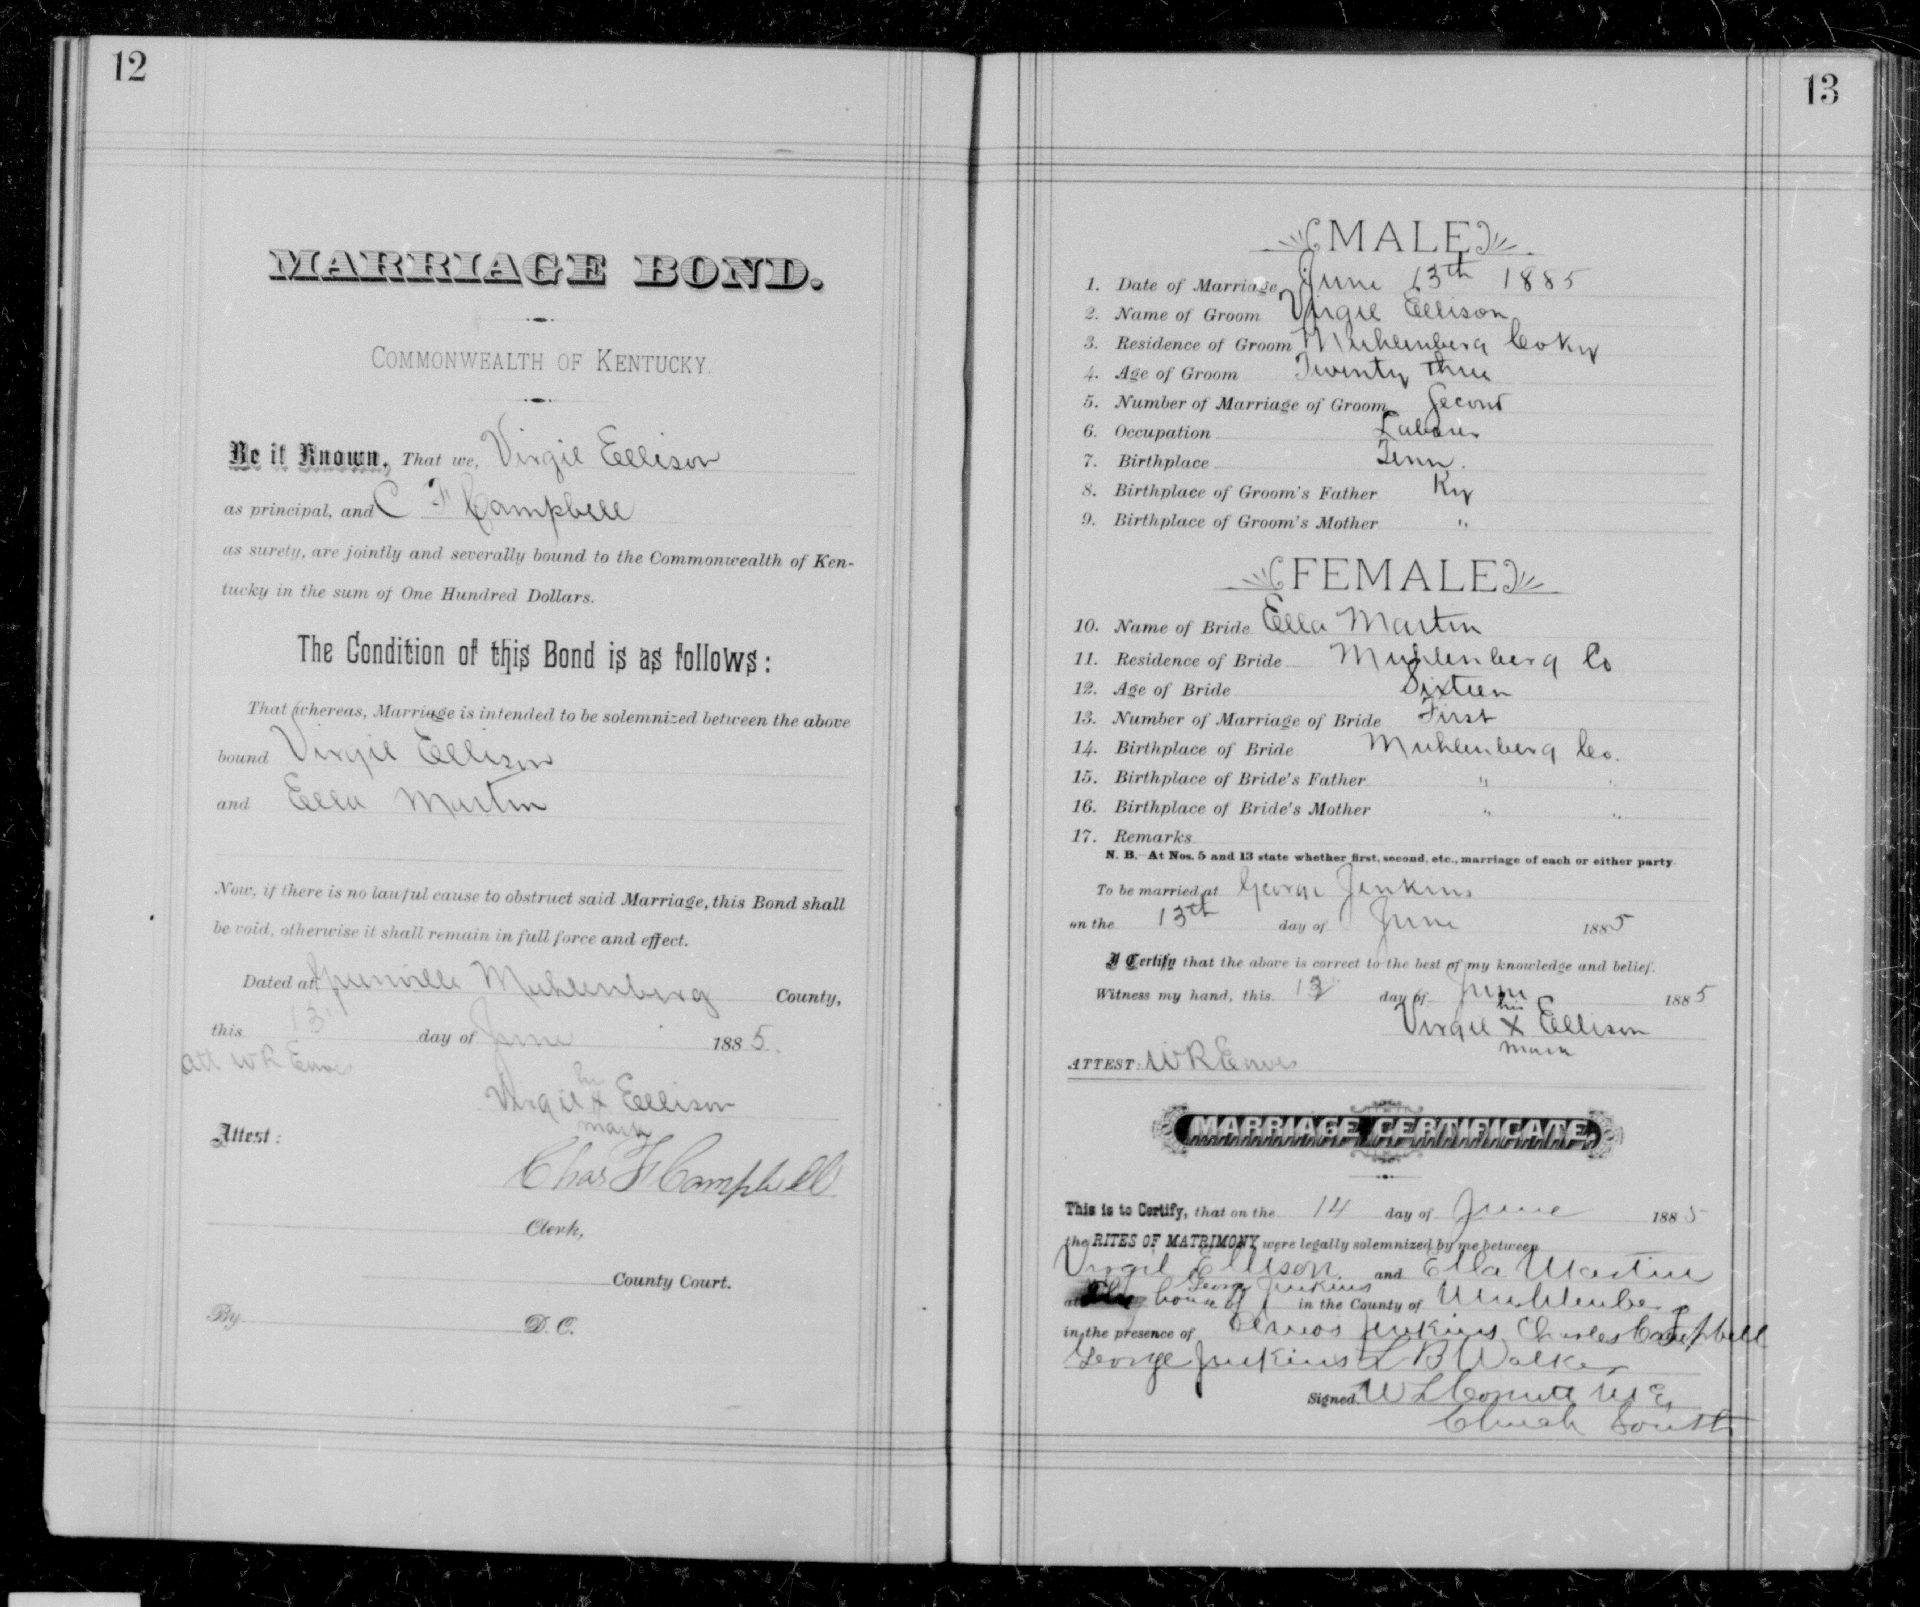 12
MARRIAGE BOND.
COMMONWEALTH OF KENTUCKY.
Be it Known, That we, Virgil Ellison
as principal, and C F Campbell
as surety, are jointly and severally bound to the Commonwealth of Ken-
tucky in the sum of One Hundred Dollars.
The Condition of this Bond is as follows:
That whereas, Marriage is intended to be solemnized between the above
bound Virgil Ellison
and Ella Martin
Now, if there is no lawful cause to obstruct said Marriage, this Bond shall
be void, otherwise it shall remain in full force and effect.
Dated at Greenville Muhlenberg County,
this 13 day of June 1885.
Att W R Eaves
his
Virgil X Ellison
mark
Attest:
Chas F Campbell
Clerk,
County Court.
By D. C.
13
MALE
1. Date of Marriage June 13th 1885
2. Name of Groom Virgil Ellison
3. Residence of Groom Muhlenberg Co Ky
4. Age of Groom Twenty three
5. Number of Marriage of Groom Second
6. Occupation Laborer
7. Birthplace Tenn.
8. Birthplace of Groom's Father Ky
9. Birthplace of Groom's Mother "
FEMALE
10. Name of Bride Ella Martin
11. Residence of Bride Muhlenberg Co
12. Age of Bride Sixteen
13. Number of Marriage of Bride First
14. Birthplace of Bride Muhlenberg Co.
15. Birthplace of Bride's Father " "
16. Birthplace of Bride's Mother " "
17. Remarks
N. B.—At Nos. 5 and 13 state whether first, second, etc., marriage of each or either party
To be married at George Jenkins
on the 13th day of June 1885
I Certify that the above is correct to the best of my knowledge and belief.
Witness my hand, this 13 day of June 1885
his
Virgil X Ellison
mark
ATTEST: W R Eaves
MARRIAGE CERTIFICATE.
This is to Certify, that on the 14 day of June 1885
the RITES OF MATRIMONY were legally solemnized by me between
Virgil Ellison and Ella Martin
George Jenkins
at house of in the County of Muhlenberg
in the presence of Jenkins Charles Campbell
George Jenkins L B Walker
Signed W L M E
Church South